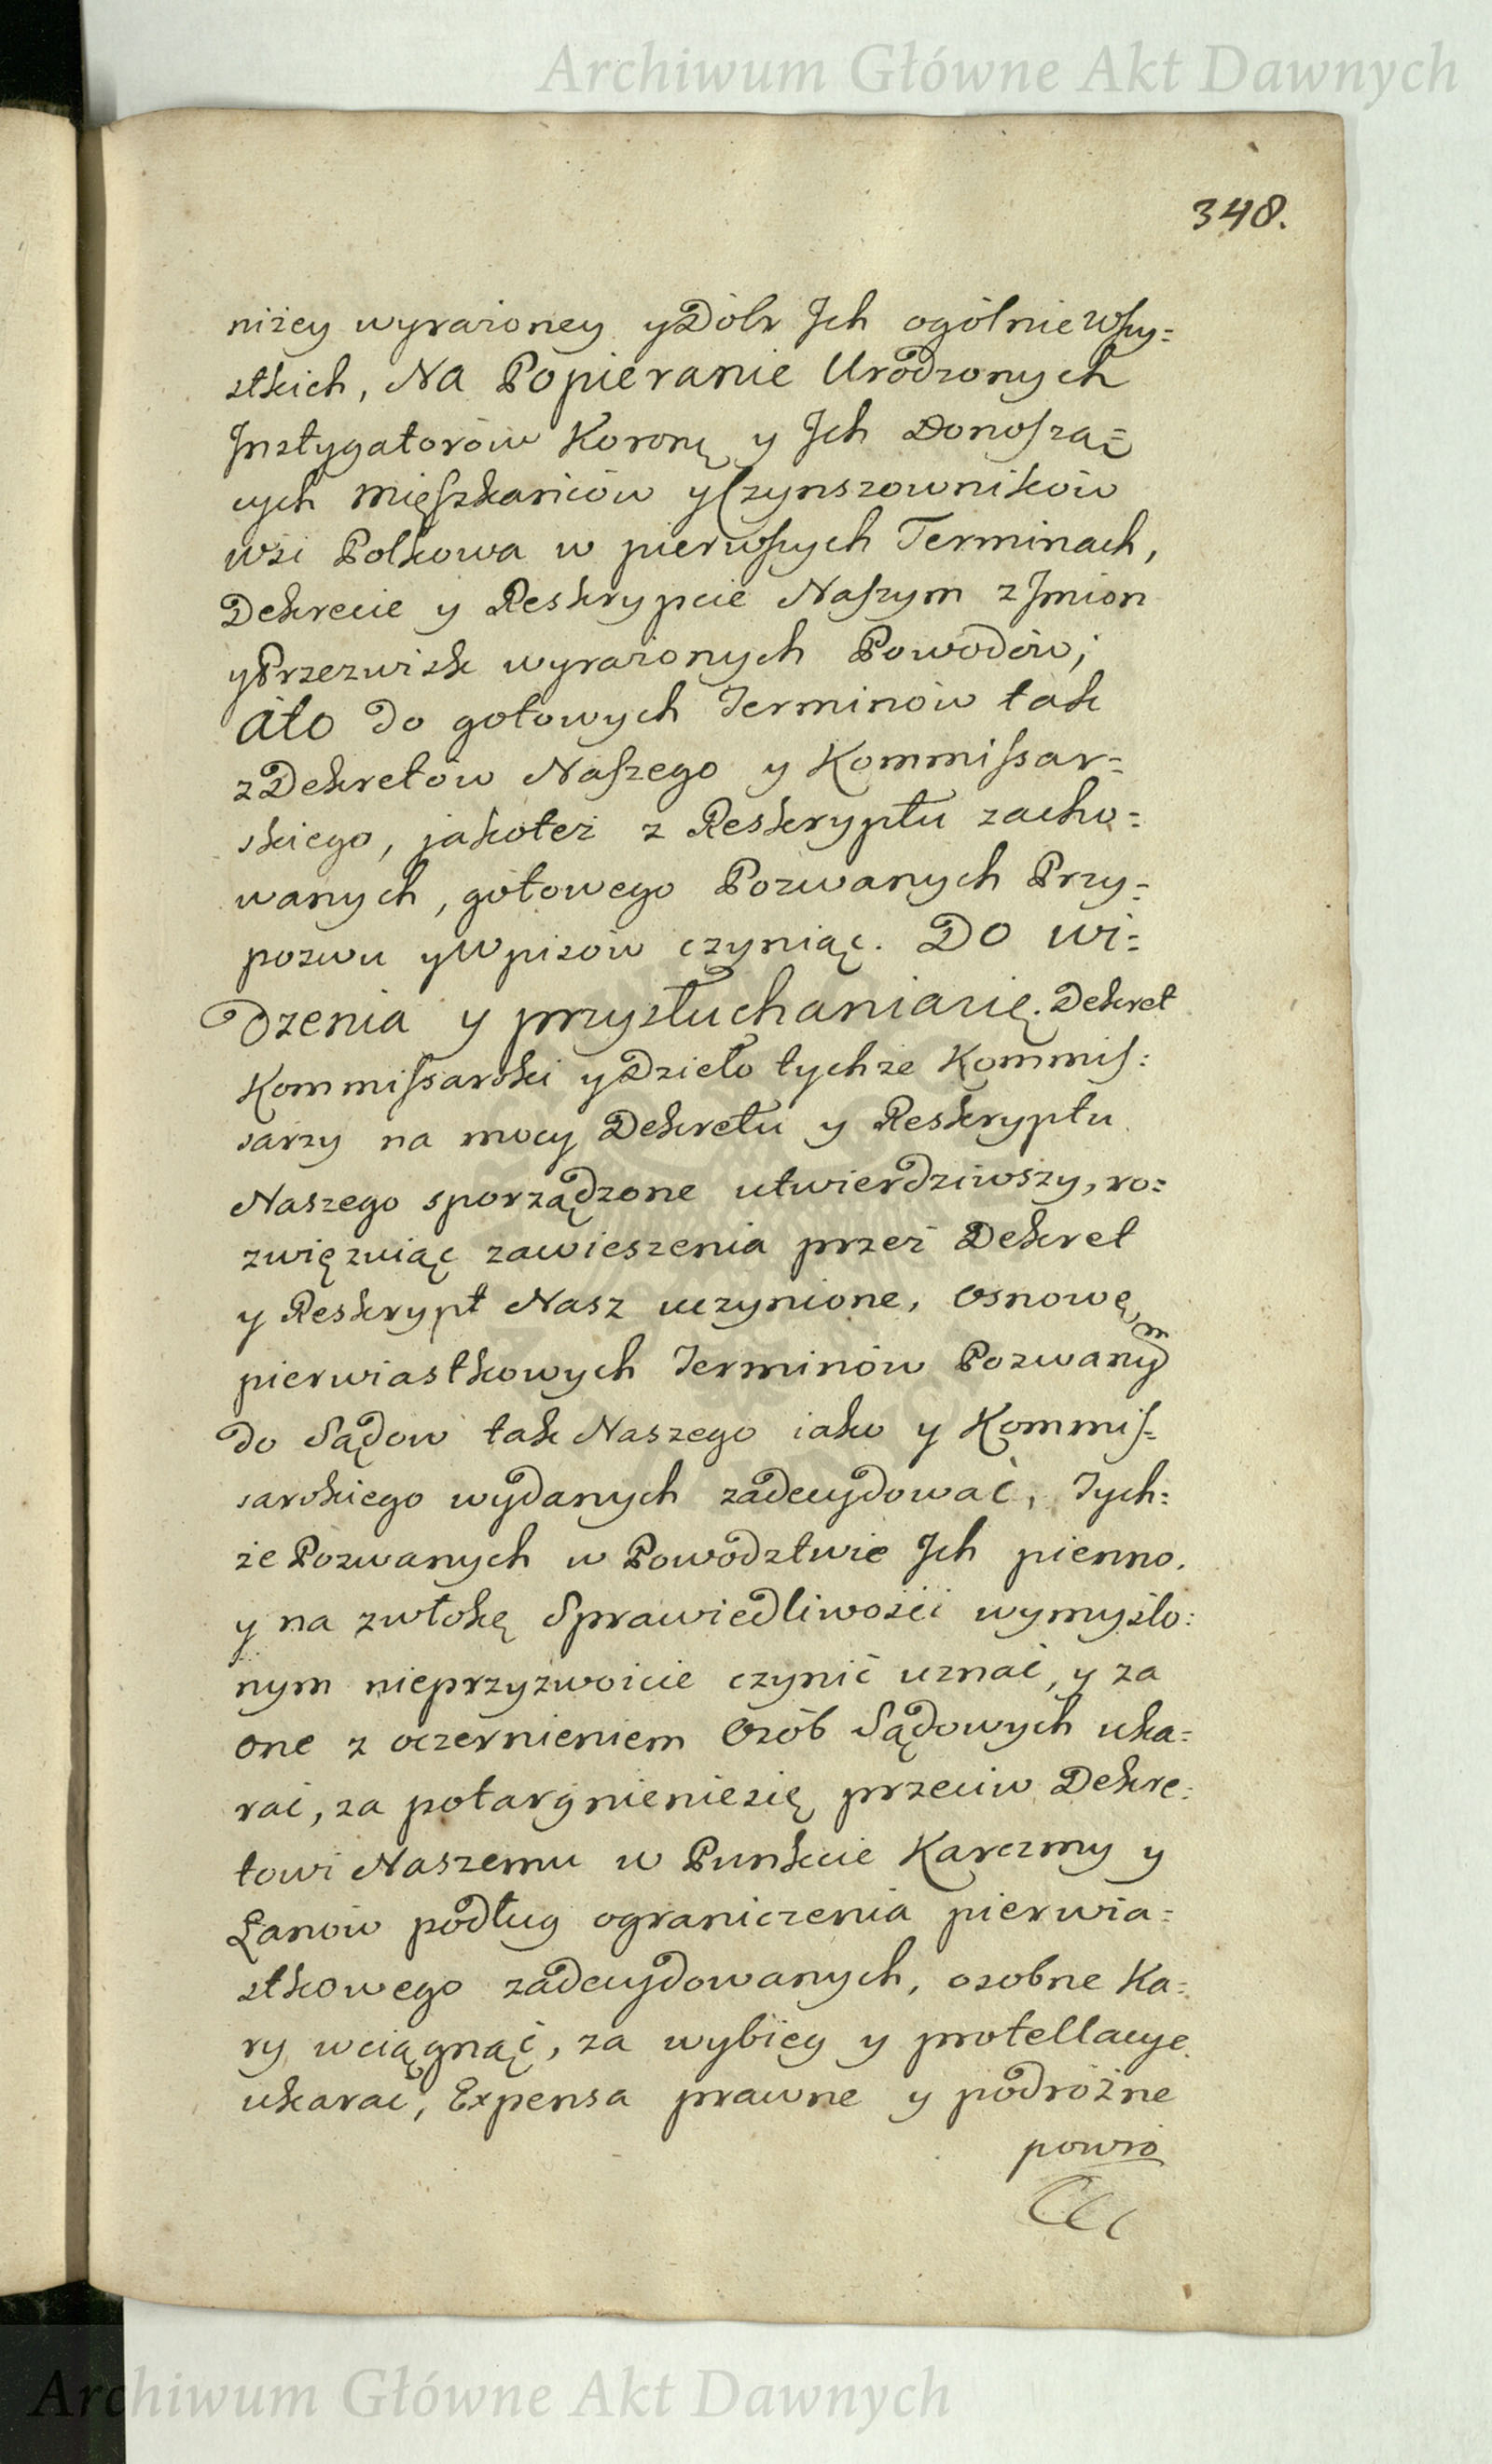 Archiwum Główne Akt Dawnych
348.
niżey wyrażoney y Dóbr Jch ogólnie wszy=
stkich, Na Popieranie Urodzonych
Jnstygatorów Koronę y Jch Donoszą=
cych mięszkańców y Czynszowników
wsi Polkowa w pierwszych Terminach,
Dekrecie y Reskrypcie Naszym z Jmion
y Przezwisk wyrażonych Powodów;
Áto do gotowych Terminów tak
z Dekretów Naszego y Kommissar=
skiego, jakoteż z Reskryptu zacho=
wanych, gotowego Pozwanych Przy=
pozwu y Wpisów czyniąc. Do wi=
dzenia y przysłuchania się. Dekret
Kommissarski y Dzieło tychże Kommis:
sarzy na mocy Dekretu y Reskryptu
Naszego sporządzone utwierdziwszy, ro=
zwięzuiąc zawieszenia przez Dekret
y Reskrypt Nasz uczynione, Osnowę
pierwiastkowych Terminów Pozwanym
do Sądow tak Naszego iako y Kommis=
sarskiego wydanych zadecydować, Tych=
że Pozwanych w Powodztwie Jch pienno.
y na zwłokę Sprawiedliwości wymyślo:
nym nieprzyzwoicie czynić uznać, y za
one z oczernieniem Osób Sądowych uka=
rać, za potargnienie się przeciw Dekre:
towi Naszemu w Punkcie Karczmy y
Łanów podług ograniczenia pierwia=
stkowego zadecydowanych, osobne Ka=
ry wciągnąć, za wybiegi y protellacye
ukarać, Expensa prawne y podróżne
powró
Archiwum Główne Akt Dawnych